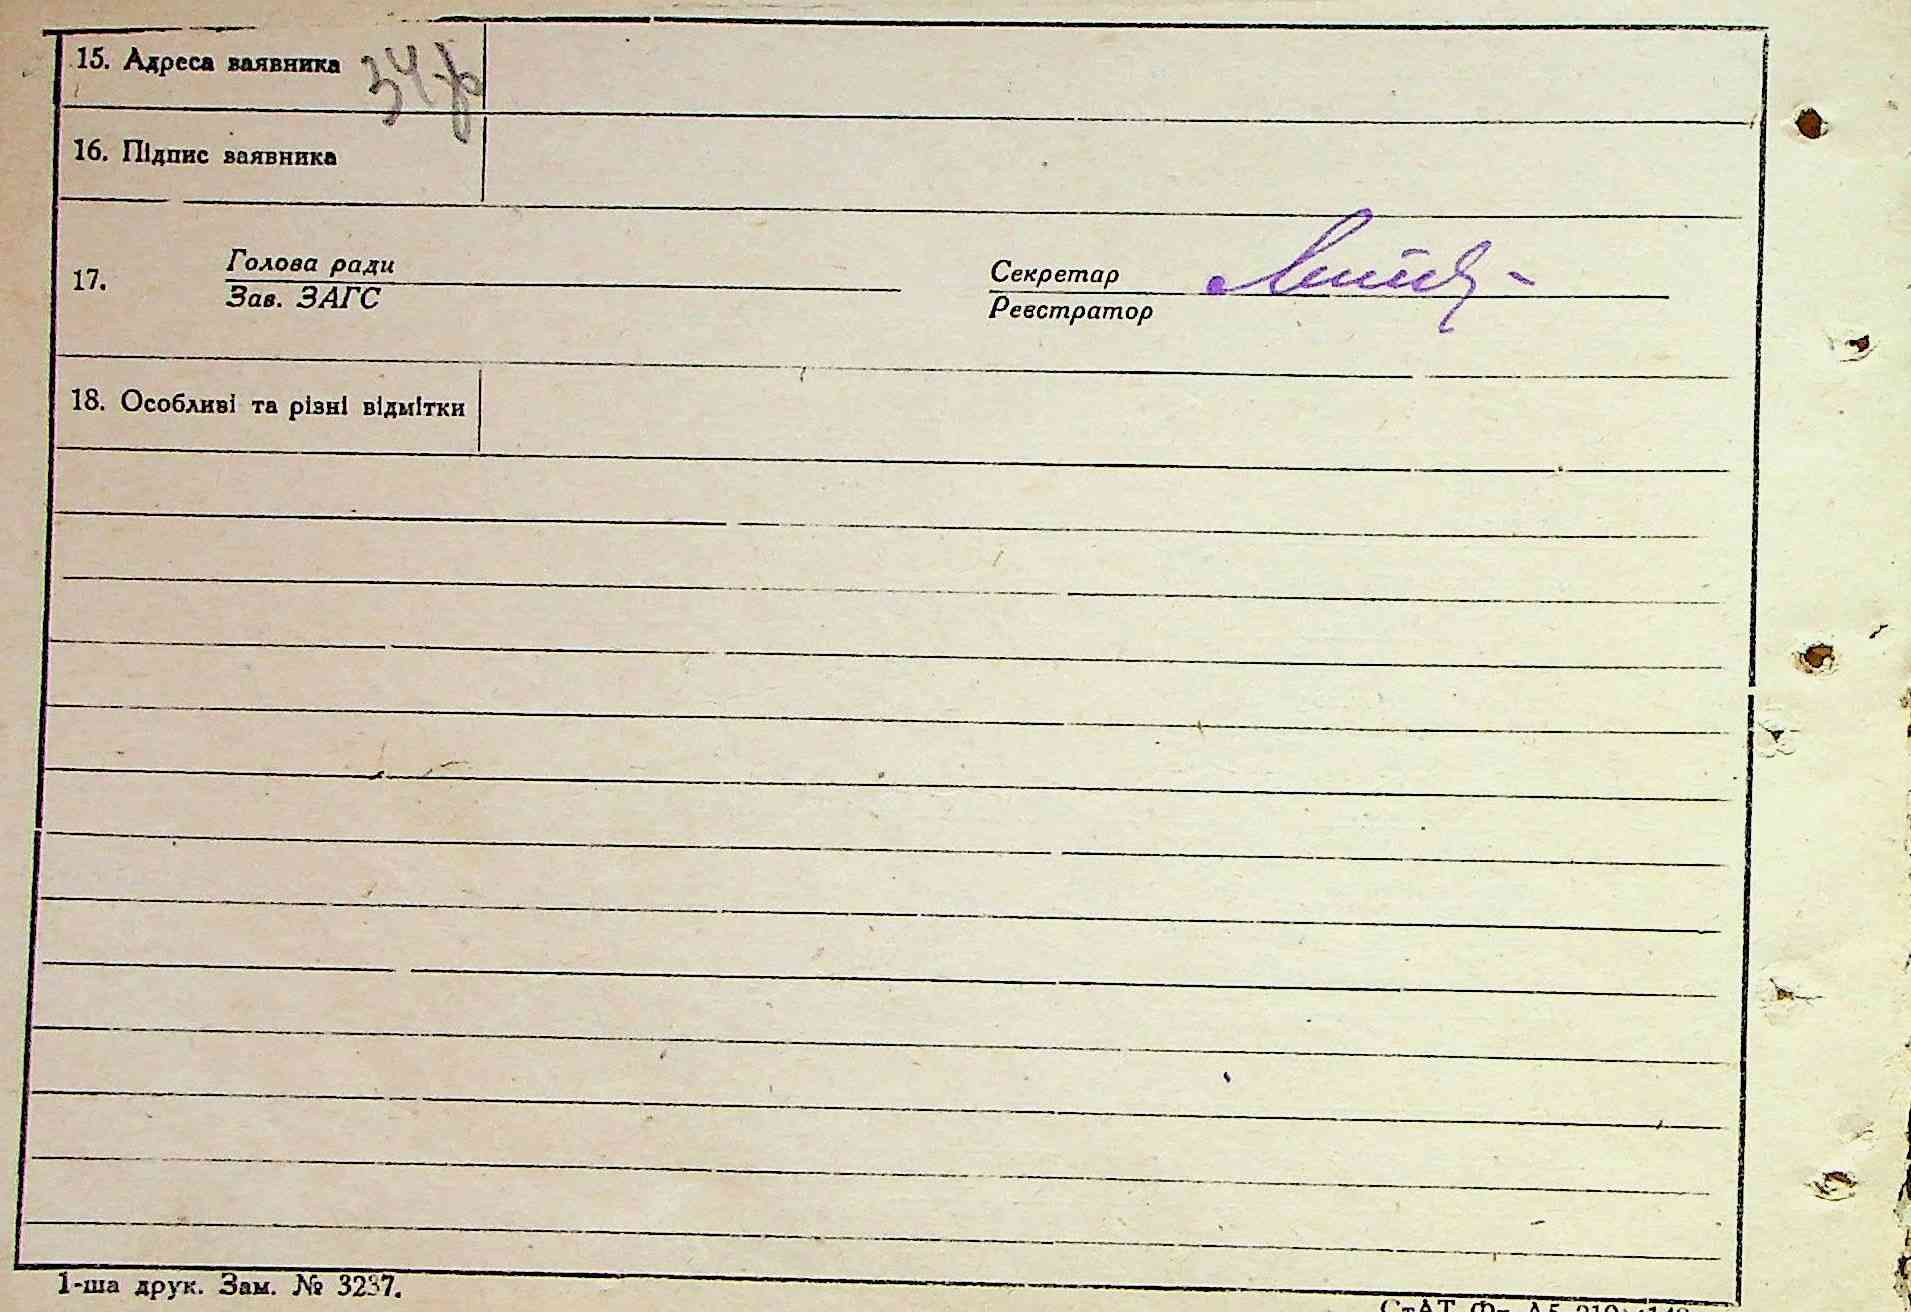 15. Адреса заявника
16. Підпис заявника
17.
Голова ради
Зав. ЗАГС
Секретар
Реєстратор
18. Особливі та різні відмітки
1-ша друк. Зам. № 3237.
СтАТ Ф-